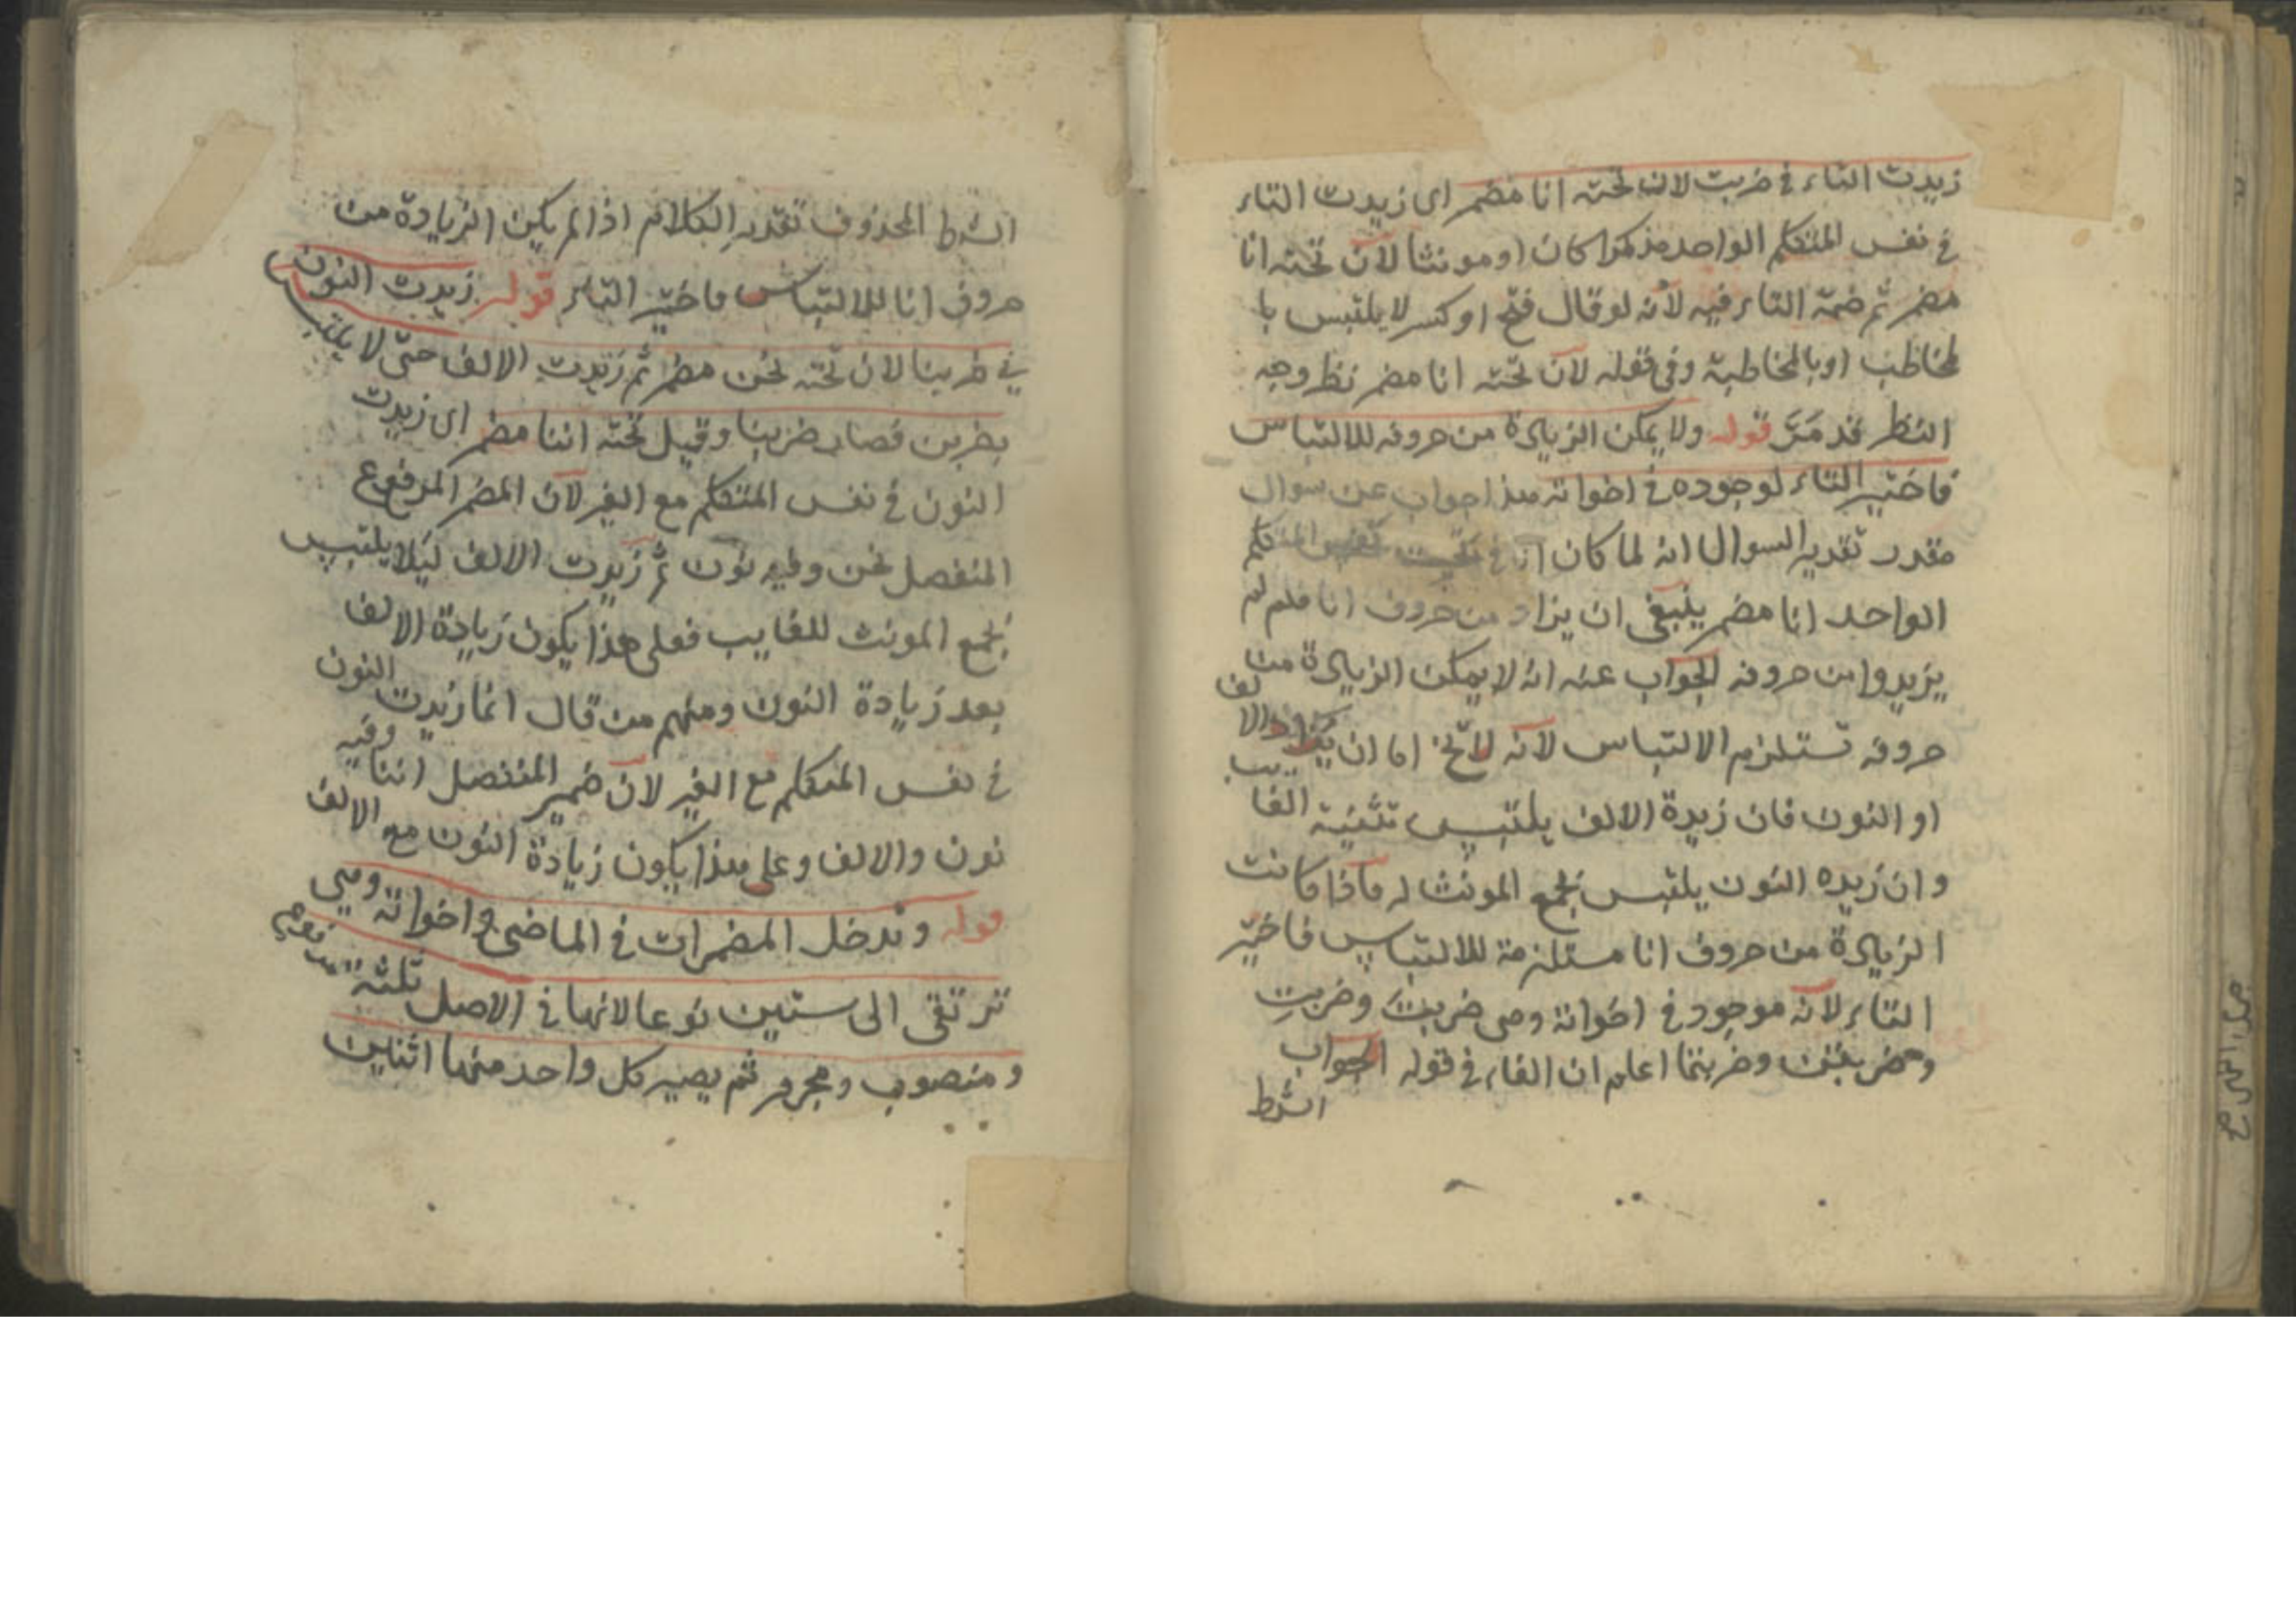 زيدت التاء في ضربت لان تحته انا مضمر اى زيدت التاء
في نفس المتكلم الواحد مذكرا كان او مونثا لان تحته انا
مضمر ثم ضمة التاء فيه لانه لو قال فتح او كسر لا يلتبس با
لمخاطب او بالمخاطبة وفي قوله لان تحته انا مضمر نظر وجه
النظر قد مر قوله ولا يمكن الزيادة من حروفه للالتباس
فاختير التاء لوجوده في اخواته هذا جواب عن سوال
مقدر تقدير السوال انه لما كان انا في تحت نفس المتكلم
الواحد انا مضمر ينبغى ان يزاد من حروف انا فلم لم
يزيدوا من حروفه الجواب عنه انه لا يمكن الزيادة من
حروفه تستلزم الالتباس لانه لا يخ اما ان يزاد الالف
او النون فان زيدة الالف يلتبس تثنية الغايب
وان زيده النون يلتبس بجمع المونث له فاذا كانت
الزيادة من حروف انا مستلزمة للالتباس فاختير
التاء لانه موجود في اخواته وهى ضربتَ وضربتِ
وضربتن وضربتما اعلم ان الفاء في قوله الجواب
الشرط
الشرط المحذوف تقدير الكلام اذا لم يكن الزيادة من
حروف انا للالتباس فاختير التاء قوله زيدت النون
في ضربنا لان تحته نحن مضمر ثم زيدت الالف حتى لا يلتبس
بضربن فصار ضربنا وقيل تحته اننا مضمر اى زيدت
النون في نفس المتكلم مع الغير لان المضمر المرفوع
المنفصل نحن وفيه نون ثم زيدت الالف ليلا يلتبس
بجمع المونث للغايب فعلى هذا يكون زيادة الالف
بعد زيادة النون ومنهم من قال انما زيدت النون
في نفس المتكلم مع الغير لان ضمير المنفصل اننا وفيه
نون والالف وعلى هذا يكون زيادة النون مع الالف
قوله وتدخل المضمرات في الماضى واخواته وهى
ترتقى الى ستين نوعا لانها في الاصل ثلثة مرفوع
ومنصوب ومجرور ثم يصير كل واحد منها اثنين